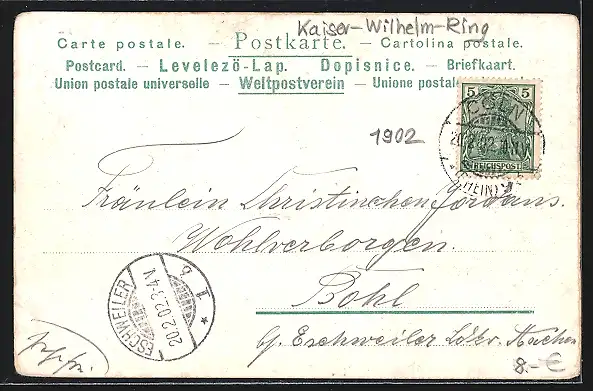 Kaiser-Wilhelm-Ring
Carte postale. — Postkarte. — Cartolina postale.
Postcard. — Levelező-Lap. Dopisnice. — Briefkaart.
Union postale universelle — Weltpostverein — Unione postale
5 5
CÖLN
REICHSPOST
(RHEIN)
1902
Fräulein Christinchen Jordans.
Wohlverborgen.
Bohl
ESCHWEILER
20.2.02.3-4V.
b. Eschweiler Aachen
8.-€